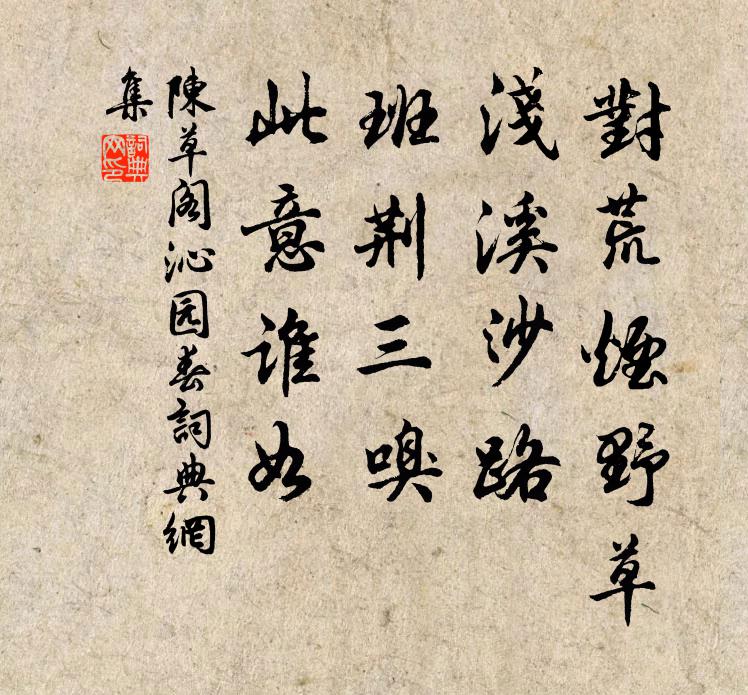 對荒煙野草
淺溪沙路
班荆三嗅
此意誰如
陳草阁沁园春詞典網
集
詞典
网印